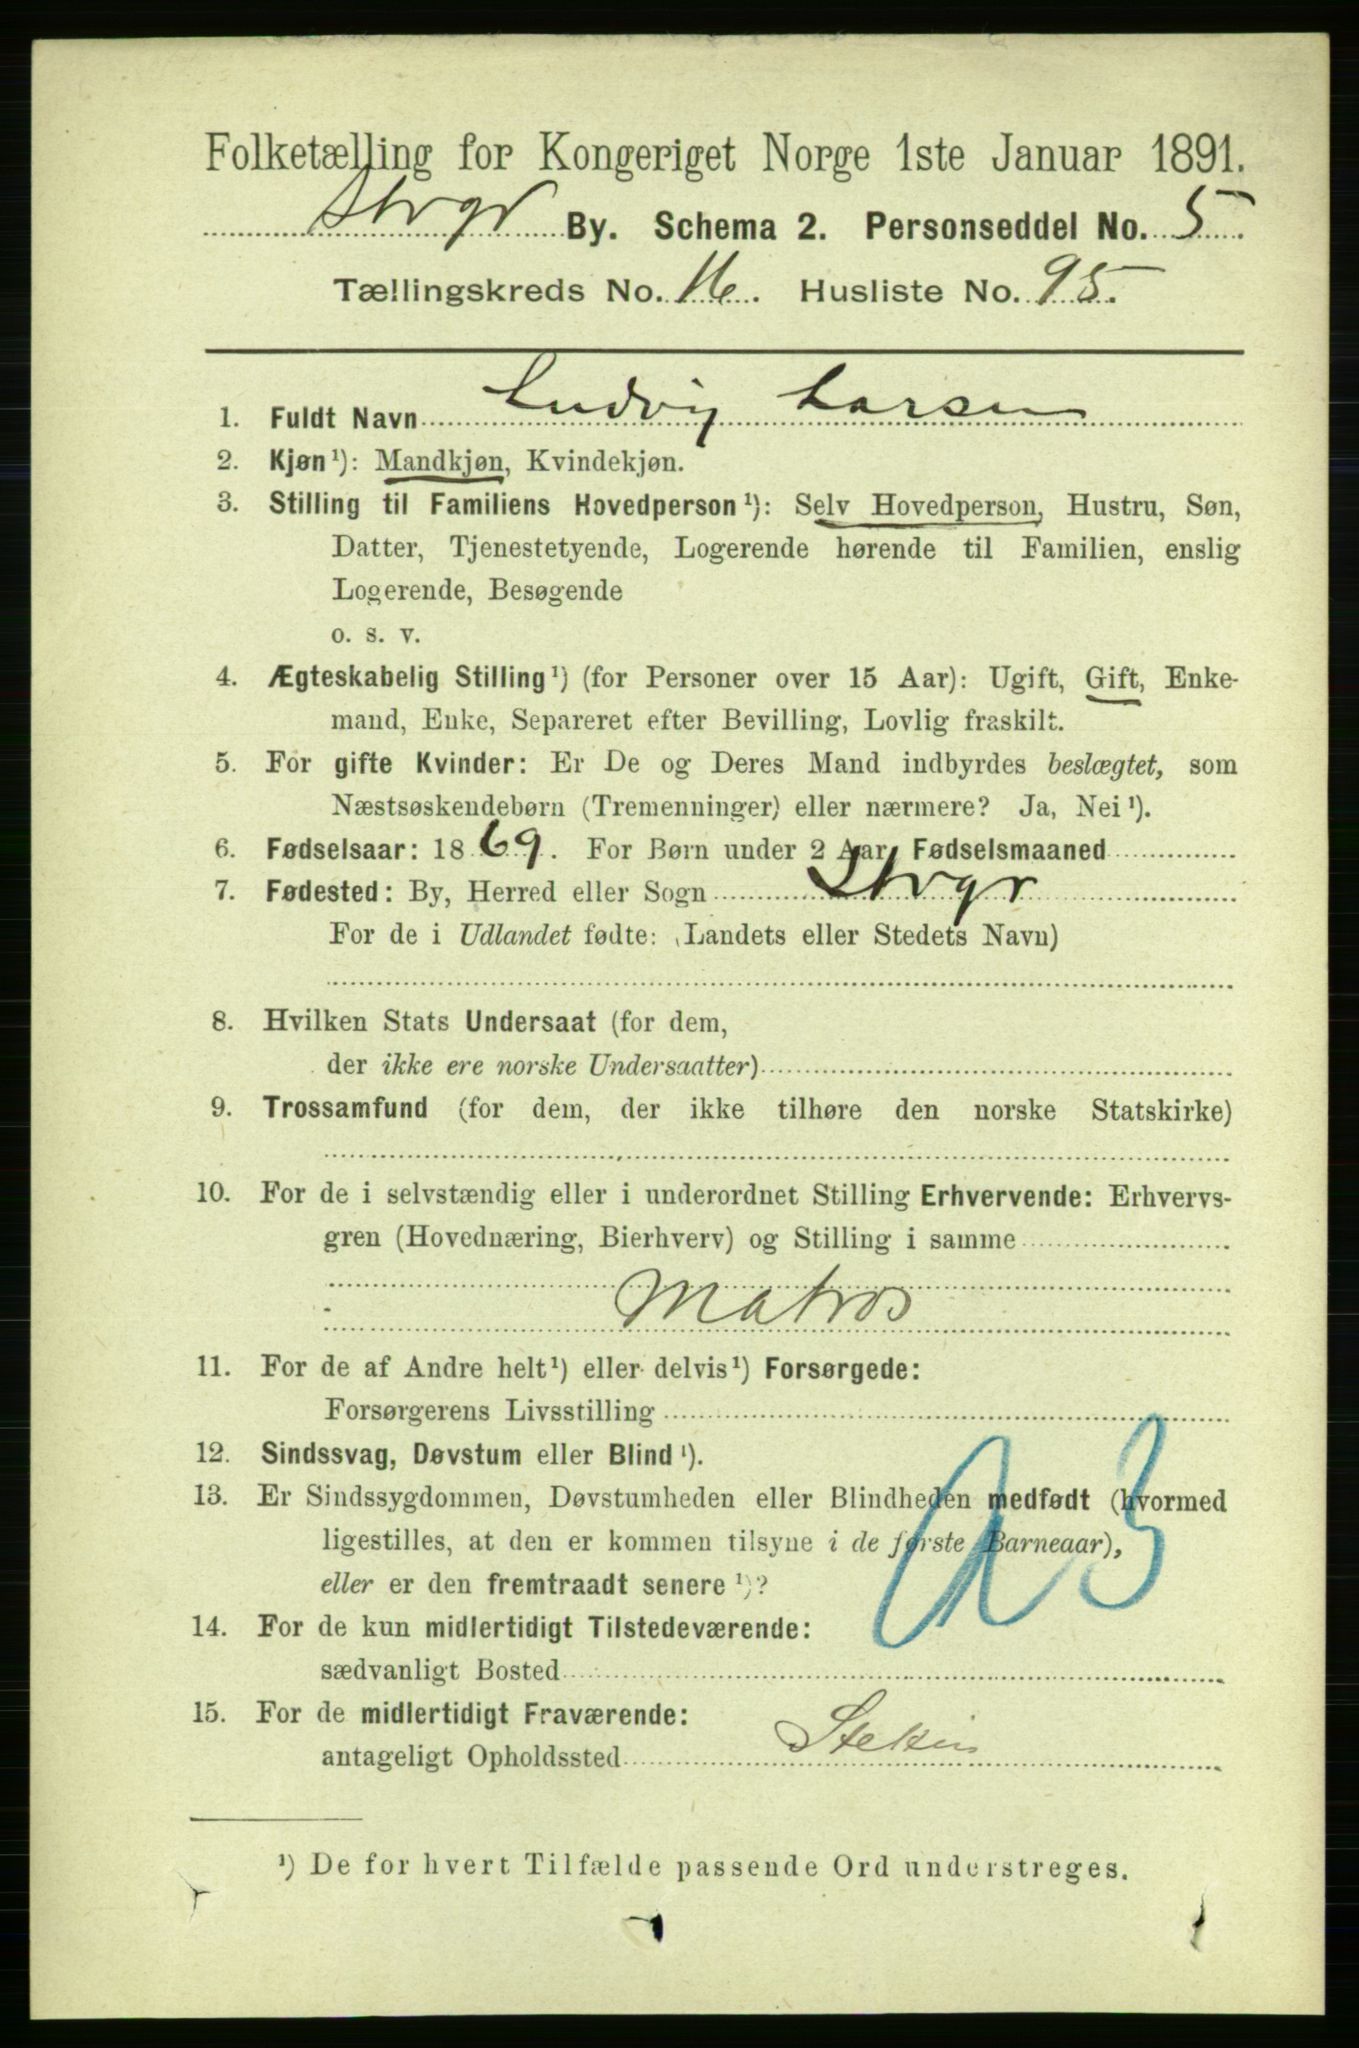 Folketælling for Kongeriget Norge 1ste Januar 1891.
Stvgr By. Schema 2. Personseddel No. 5.
Tællingskreds No. 16. Husliste No. 95.
1. Fuldt Navn Ludvig Larsen
2. Kjøn ¹): Mandkjøn, Kvindekjøn.
3. Stilling til Familiens Hovedperson ¹): Selv Hovedperson, Hustru, Søn,
Datter, Tjenestetyende, Logerende hørende til Familien, enslig
Logerende, Besøgende
o. s. v.
4. Ægteskabelig Stilling ¹) (for Personer over 15 Aar): Ugift, Gift, Enke-
mand, Enke, Separeret efter Bevilling, Lovlig fraskilt.
5. For gifte Kvinder: Er De og Deres Mand indbyrdes beslægtet, som
Næstsøskendebørn (Tremenninger) eller nærmere? Ja, Nei ¹).
6. Fødselsaar: 1869. For Børn under 2 Aar, Fødselsmaaned
7. Fødested: By, Herred eller Sogn Stvgr
For de i Udlandet fødte: (Landets eller Stedets Navn)
8. Hvilken Stats Undersaat (for dem,
der ikke ere norske Undersaatter)
9. Trossamfund (for dem, der ikke tilhøre den norske Statskirke)
10. For de i selvstændig eller i underordnet Stilling Erhvervende: Erhvervs-
gren (Hovednæring, Bierhverv) og Stilling i samme
Matros
11. For de af Andre helt ¹) eller delvis ¹) Forsørgede:
Forsørgerens Livsstilling
12. Sindssvag, Døvstum eller Blind ¹).
13. Er Sindssygdommen, Døvstumheden eller Blindheden medfødt (hvormed
ligestilles, at den er kommen tilsyne i de første Barneaar),
eller er den fremtraadt senere ¹)?
14. For de kun midlertidigt Tilstedeværende:
sædvanligt Bosted
15. For de midlertidigt Fraværende:
antageligt Opholdssted
¹) De for hvert Tilfælde passende Ord understreges.